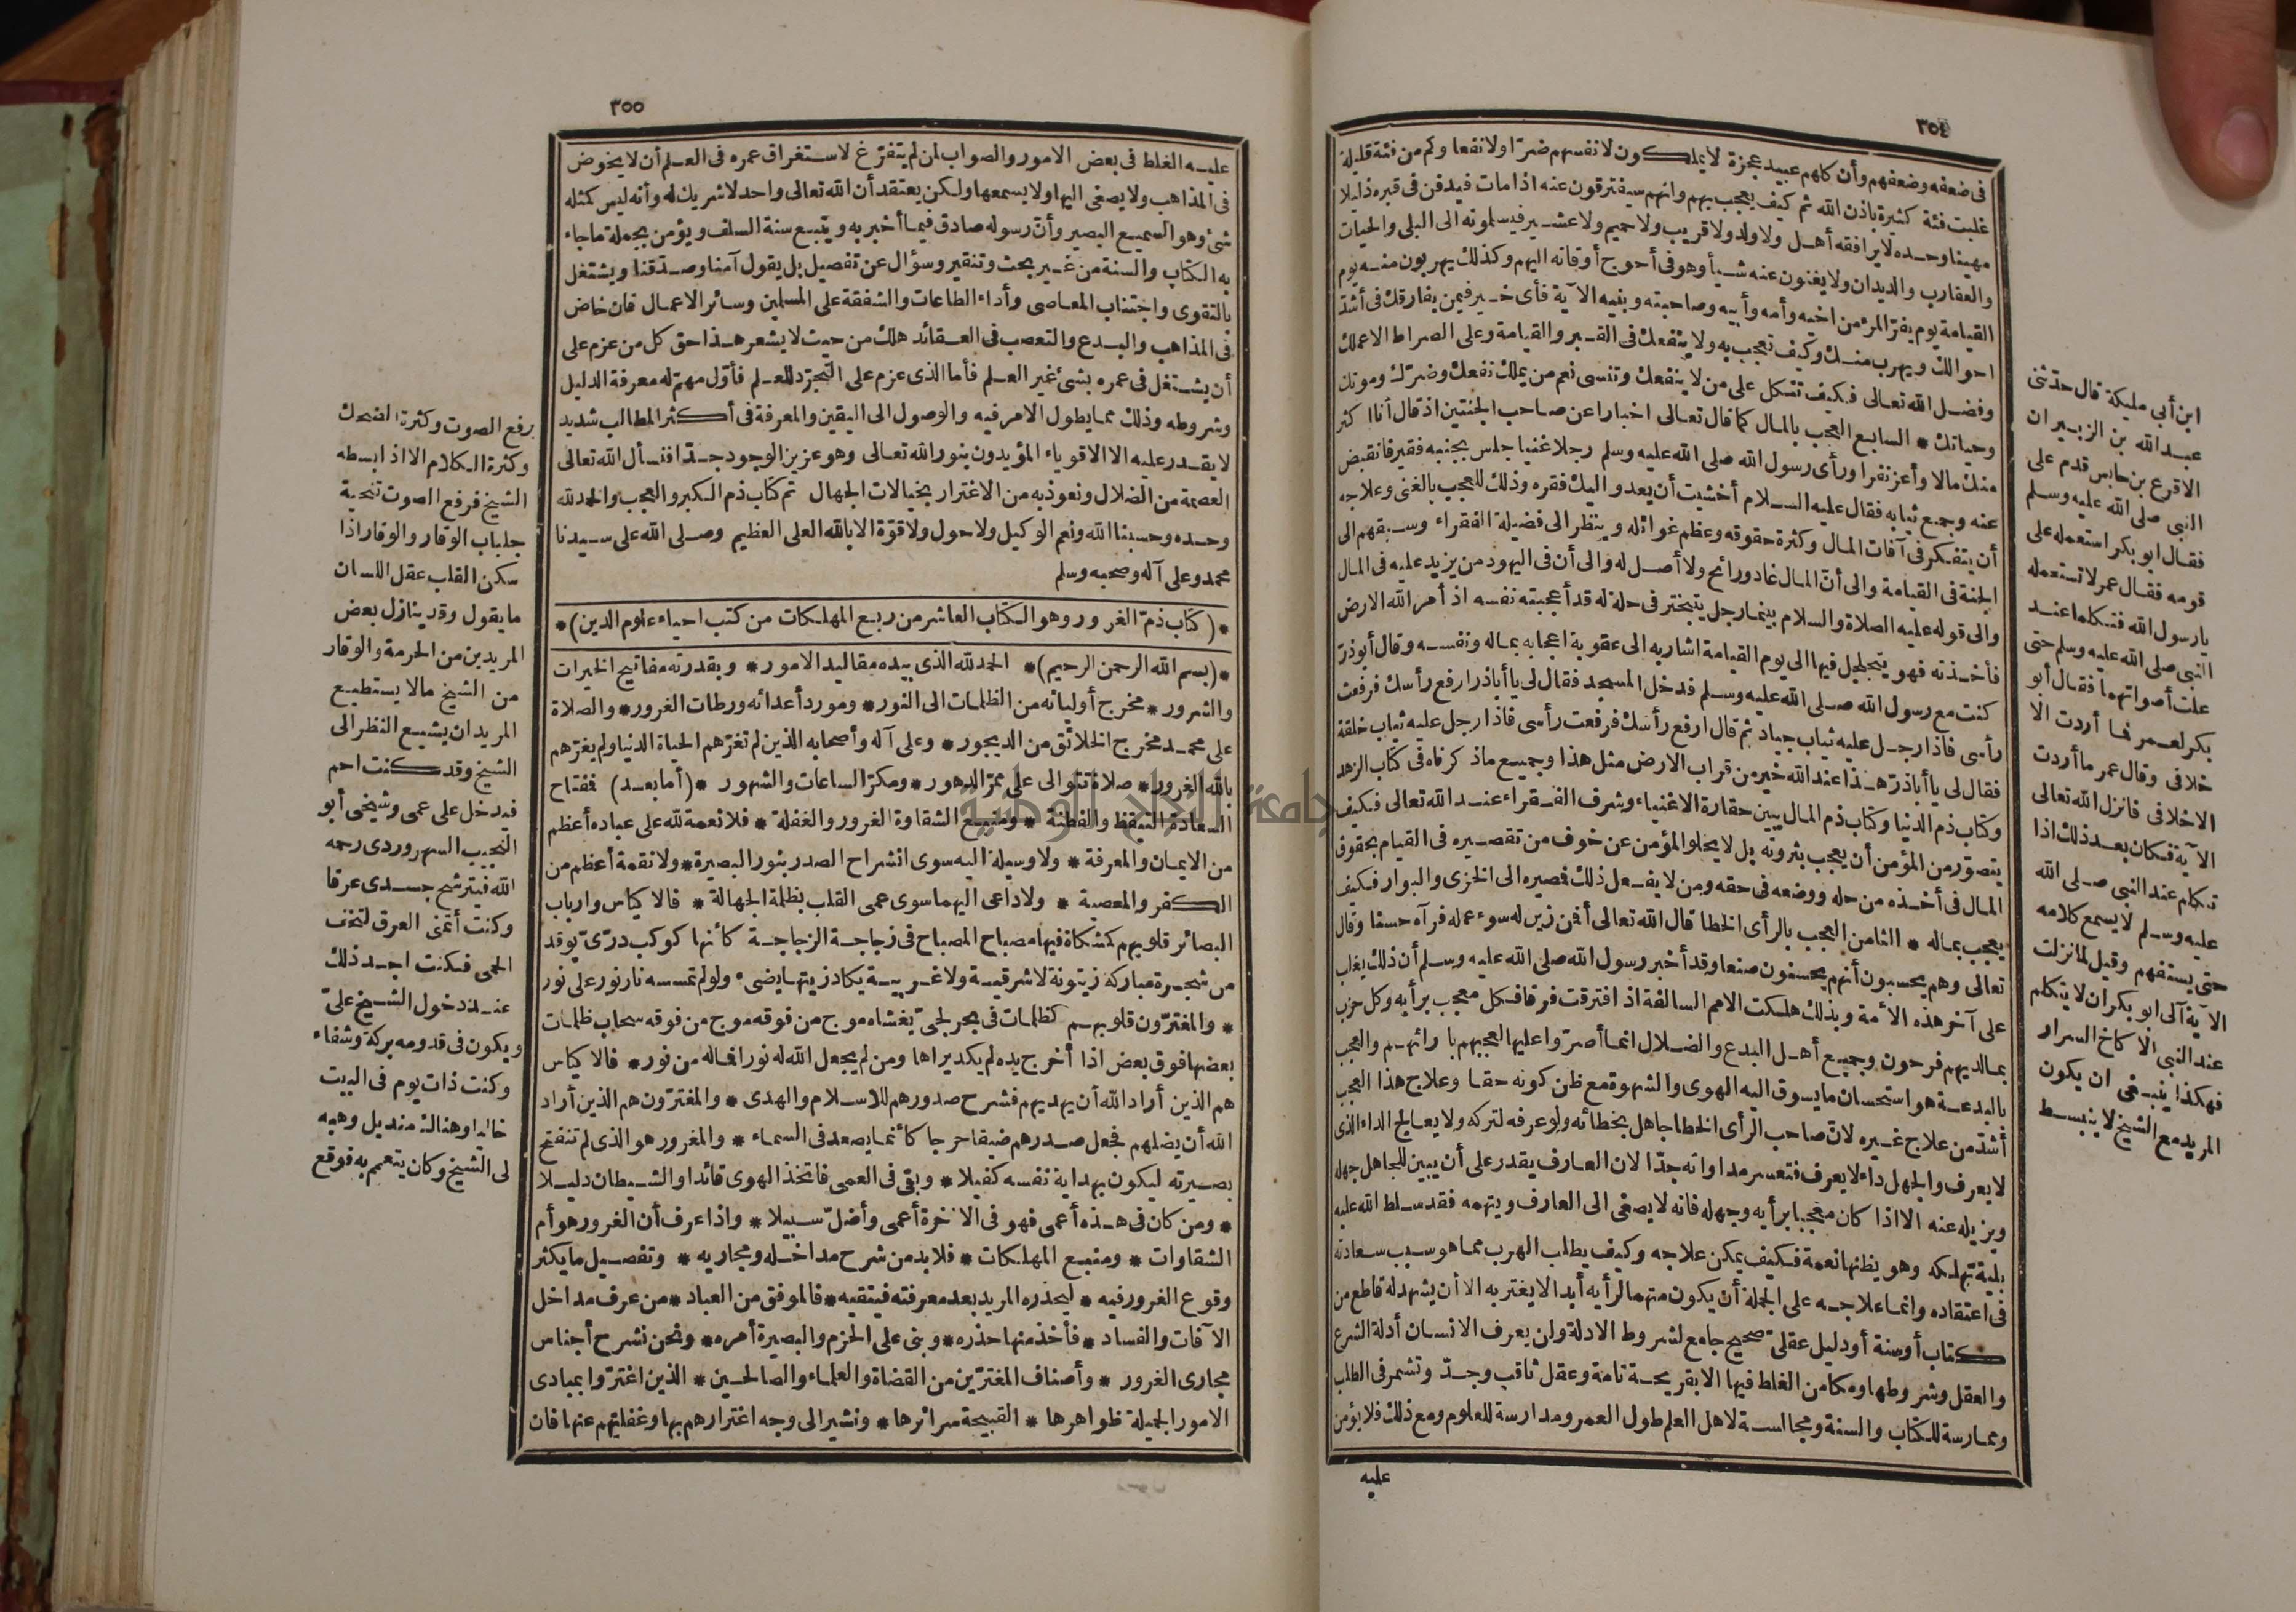 ٣٥٤
فى ضعفه وضعفهم وأن كلهم عبيد عجزة لا يملكون لانفسهم ضرّا ولا نفعا وكم من فئة قليلة
غلبت فئة كثيرة باذن الله ثم كيف يعجب بهم وانهم سيفترقون عنه اذا مات فيدفن فى قبره ذليلا
مهينا وحده لا يرافقه أهل ولا ولد ولا قريب ولا حميم ولا عشير فيسلمونه الى البلى والحيات
والعقارب والديدان ولا يغنون عنه شيأ وهو فى أحوج أوقاته اليهم وكذلك يهربون منه يوم
القيامة يوم يفرّ المرء من اخيه وأمه وأبيه وصاحبته وبنيه الآية فأى خير فيمن يفارقك فى أشدّ
احوالك ويهرب منك وكيف تعجب به ولا ينفعك فى القبر والقيامة وعلى الصراط الاعملك
وفضل الله تعالى فكيف تتكل على من لا ينفعك وتنسى نعم من يملك نفعك وضرّك وموتك
وحياتك * السابع العجب بالمال كما قال تعالى اخبارا عن صاحب الجنتين اذ قال أنا اكثر
منك مالا وأعز نفرا ورأى رسول الله صلى الله عليه وسلم رجلا غنيا جلس بجنبه فقير فانقبض
عنه وجمع ثيابه فقال عليه السلام أخشيت أن يعدو اليك فقره وذلك للعجب بالغنى وعلاجه
أن يتفكر فى آفات المال وكثرة حقوقه وعظم غوائله وينظر الى فضيلة الفقراء وسبقهم الى
الجنة فى القيامة والى أنّ المال غاد ورائح ولا أصل له والى أن فى اليهود من يزيد عليه فى المال
والى قوله عليه الصلاة والسلام بينما رجل يتبختر فى حلة له قد أعجبته نفسه اذ أمر الله الارض
فأخذته فهو يتجلجل فيها الى يوم القيامة اشار به الى عقوبة اعجابه بماله ونفسه وقال أبوذرّ
كنت مع رسول الله صلى الله عليه وسلم فدخل المسجد فقال لى يا أباذر ارفع رأسك فرفعت
رأسى فاذا رجل عليه ثياب جياد ثم قال ارفع رأسك فرفعت رأسى فاذا رجل عليه ثياب خلقة
فقال لى يا أباذرّ هذا عند الله خير من قراب الارض مثل هذا وجميع ماذكرناه فى كتاب الزهد
وكتاب ذم الدنيا وكتاب ذم المال يبين حقارة الاغنياء وشرف الفقراء عند الله تعالى فكيف
يتصوّر من المؤمن أن يعجب بثروته بل لا يخلو المؤمن عن خوف من تقصيره فى القيام بحقوق
المال فى أخذه من حله ووضعه فى حقه ومن لا يفعل ذلك فمصيره الى الخزى والبوار فكيف
يعجب بماله * الثامن العجب بالرأى الخطا قال الله تعالى أفمن زين له سوء عمله فرآه حسنا وقال
تعالى وهم يحسبون أنهم يحسنون صنعا وقد أخبر رسول الله صلى الله عليه وسلم أن ذلك يغلب
على آخر هذه الأمة وبذلك هلكت الامم السالفة اذ افترقت فرقا فكل معجب برأيه وكل حزب
بمالديهم فرحون وجميع أهل البدع والضلال انما أصرّوا عليها لعجبهم بآرائهم والعجب
بالبدعة هو استحسان مايسوق اليه الهوى والشهوة مع ظن كونه حقا وعلاج هذا العجب
أشدّ من علاج غيره لانّ صاحب الرأى الخطا جاهل بخطائه ولو عرفه لتركه ولا يعالج الداء الذى
لا يعرف والجهل داء لا يعرف فتعسر مداواته جدّا لان العارف يقدر على أن يبين للجاهل جهله
ويزيله عنه الا اذا كان معجبا برأيه وجهله فانه لا يصغى الى العارف ويتهمه فقد سلط الله عليه
بلية تهلكه وهو يظنها نعمة فكيف يمكن علاجه وكيف يطلب الهرب مما هو سبب سعادته
فى اعتقاده وانما علاجه على الجملة أن يكون متهما لرأيه أبدا لا يغتر به الا أن يشهد له قاطع من
كتاب أو سنة أو دليل عقلىّ صحيح جامع لشروط الادلة ولن يعرف الانسان أدلة الشرع
والعقل وشروطها ومكامن الغلط فيها الا بقريحة تامة وعقل ثاقب وجدّ وتشمر فى الطلب
وممارسة للكتاب والسنة ومجالسة لاهل العلم طول العمر ومدارسة للعلوم ومع ذلك فلا يؤمن
عليه
ابن أبى مليكة قال حدّثنى
عبد الله بن الزبير ان
الاقرع بن حابس قدم على
النبى صلى الله عليه وسلم
فقال ابو بكر استعمله على
قومه فقال عمر لا تستعمله
يارسول الله فتكلما عند
النبى صلى الله عليه وسلم حتى
علت أصواتهما فقال أبو
بكر لعمر فما أردت الا
خلافى وقال عمر ما أردت
الاخلافى فانزل الله تعالى
الآية فكان بعد ذلك اذا
تكلم عند النبى صلى الله
عليه وسلم لا يسمع كلامه
حتى يستفهم وقيل لما نزلت
الآية آلى ابو بكر ان لا يتكلم
عند النبى الا كاخ السرار
فهكذا ينبغى ان يكون
المريد مع الشيخ لا ينبسط
٣٥٥
عليه الغلط فى بعض الامور والصواب لمن لم يتفرّغ لاستغراق عمره فى العلم أن لا يخوض
فى المذاهب ولا يصغى اليها ولا يسمعها ولكن يعتقد أن الله تعالى واحد لا شريك له وأنه ليس كمثله
شئ وهو السميع البصير وأنّ رسوله صادق فيما أخبر به ويتبع سنة السلف ويؤمن بجملة ماجاء
به الكتاب والسنة من غير بحث وتنقير وسؤال عن تفصيل بل يقول آمنا وصدّقنا ويشتغل
بالتقوى واجتناب المعاصى وأداء الطاعات والشفقة على المسلمين وسائر الاعمال فان خاض
فى المذاهب والبدع والتعصب فى العقائد هلك من حيث لا يشعر هذا حق كل من عزم على
أن يشتغل فى عمره بشئ غير العلم فأما الذى عزم على التجرّد للعلم فأوّل مهمّ له معرفة الدليل
وشروطه وذلك مما يطول الامر فيه والوصول الى اليقين والمعرفة فى أكثر المطالب شديد
لا يقدر عليه الا الاقوياء المؤيدون بنور الله تعالى وهو عزيز الوجود جدّا فنسأل الله تعالى
العصمة من الضلال ونعوذ به من الاغترار بخيالات الجهال تم كتاب ذم الكبر والعجب والحمد لله
وحده وحسبنا الله ونعم الوكيل ولا حول ولا قوّة الا بالله العلى العظيم وصلى الله على سيدنا
محمد وعلى آله وصحبه وسلم
*(كتاب ذمّ الغرور وهو الكتاب العاشر من ربع المهلكات من كتب احياء علوم الدين)*
*(بسم الله الرحمن الرحيم)* الحمد لله الذى بيده مقاليد الامور* وبقدرته مفاتيح الخيرات
والشرور* مخرج أوليائه من الظلمات الى النور* ومورد أعدائه ورطات الغرور* والصلاة
على محمد مخرج الخلائق من الديجور* وعلى آله وأصحابه الذين لم تغرّهم الحياة الدنيا ولم يغرّهم
بالله الغرور* صلاة تتوالى على ممرّ الدهور* ومكرّ الساعات والشهور *(أما بعد) فمفتاح
السعادة التيقظ والفطنة * ومنبع الشقاوة الغرور والغفلة * فلا نعمة لله على عباده أعظم
من الايمان والمعرفة * ولا وسيلة اليه سوى انشراح الصدر بنور البصيرة* ولا نقمة أعظم من
الكفر والمعصية * ولا داعى اليهما سوى عمى القلب بظلمة الجهالة * فالاكياس وارباب
البصائر قلوبهم كمشكاة فيها مصباح المصباح فى زجاجة الزجاجة كأنها كوكب درّىّ يوقد
من شجرة مباركة زيتونة لا شرقية ولا غربية يكاد زيتها يضىء ولو لم تمسسه نار نور على نور
* والمغترّون قلوبهم كظلمات فى بحر لجىّ يغشاه موج من فوقه موج من فوقه سحاب ظلمات
بعضها فوق بعض اذا أخرج يده لم يكد يراها ومن لم يجعل الله له نورا فماله من نور* فالاكياس
هم الذين أراد الله أن يهديهم فشرح صدورهم للاسلام والهدى* والمغترّون هم الذين أراد
الله أن يضلهم فجعل صدرهم ضيقا حرجا كأنما يصعد فى السماء * والمغرور هو الذى لم تنفتح
بصيرته ليكون بهداية نفسه كفيلا* وبقى فى العمى فاتخذ الهوى قائدا والشيطان دليلا
* ومن كان فى هذه أعمى فهو فى الاخرة أعمى وأضلّ سبيلا* واذا عرف أن الغرور هو أم
الشقاوات * ومنبع المهلكات * فلا بد من شرح مداخله ومجاريه * وتفصيل مايكثر
وقوع الغرور فيه * ليحذره المريد بعد معرفته فيتقيه* فالموفق من العباد* من عرف مداخل
الآفات والفساد * فأخذ منها حذره* وبنى على الحزم والبصيرة أمره* ونحن نشرح أجناس
مجارى الغرور * وأصناف المغترّين من القضاة والعلماء والصالحين* الذين اغترّوا بمبادى
الامور الجميلة ظواهرها * القبيحة سرائرها* ونشير الى وجه اغترارهم بها وغفلتهم عنها فان
برفع الصوت وكثرة الضحك
وكثرة الكلام الا اذا بسطه
الشيخ فرفع الصوت تنحية
جلباب الوقار والوقار اذا
سكن القلب عقل اللسان
ما يقول وقد ينازل بعض
المريدين من الحرمة والوقار
من الشيخ مالا يستطيع
المريد ان يشبع النظر الى
الشيخ وقد كنت احم
فيدخل على عمى وشيخى أبو
النجيب السهروردى رحمه
الله فيترشح جسدى عرقا
وكنت أتمنى العرق لتخف
الحمى فكنت اجد ذلك
عند دخول الشيخ علىّ
ويكون فى قدومه بركة وشفاء
وكنت ذات يوم فى البيت
خاليا وهنالك منديل وهبه
لى الشيخ وكان يتعمم به فوقع
جامعة النجاح الوطنية